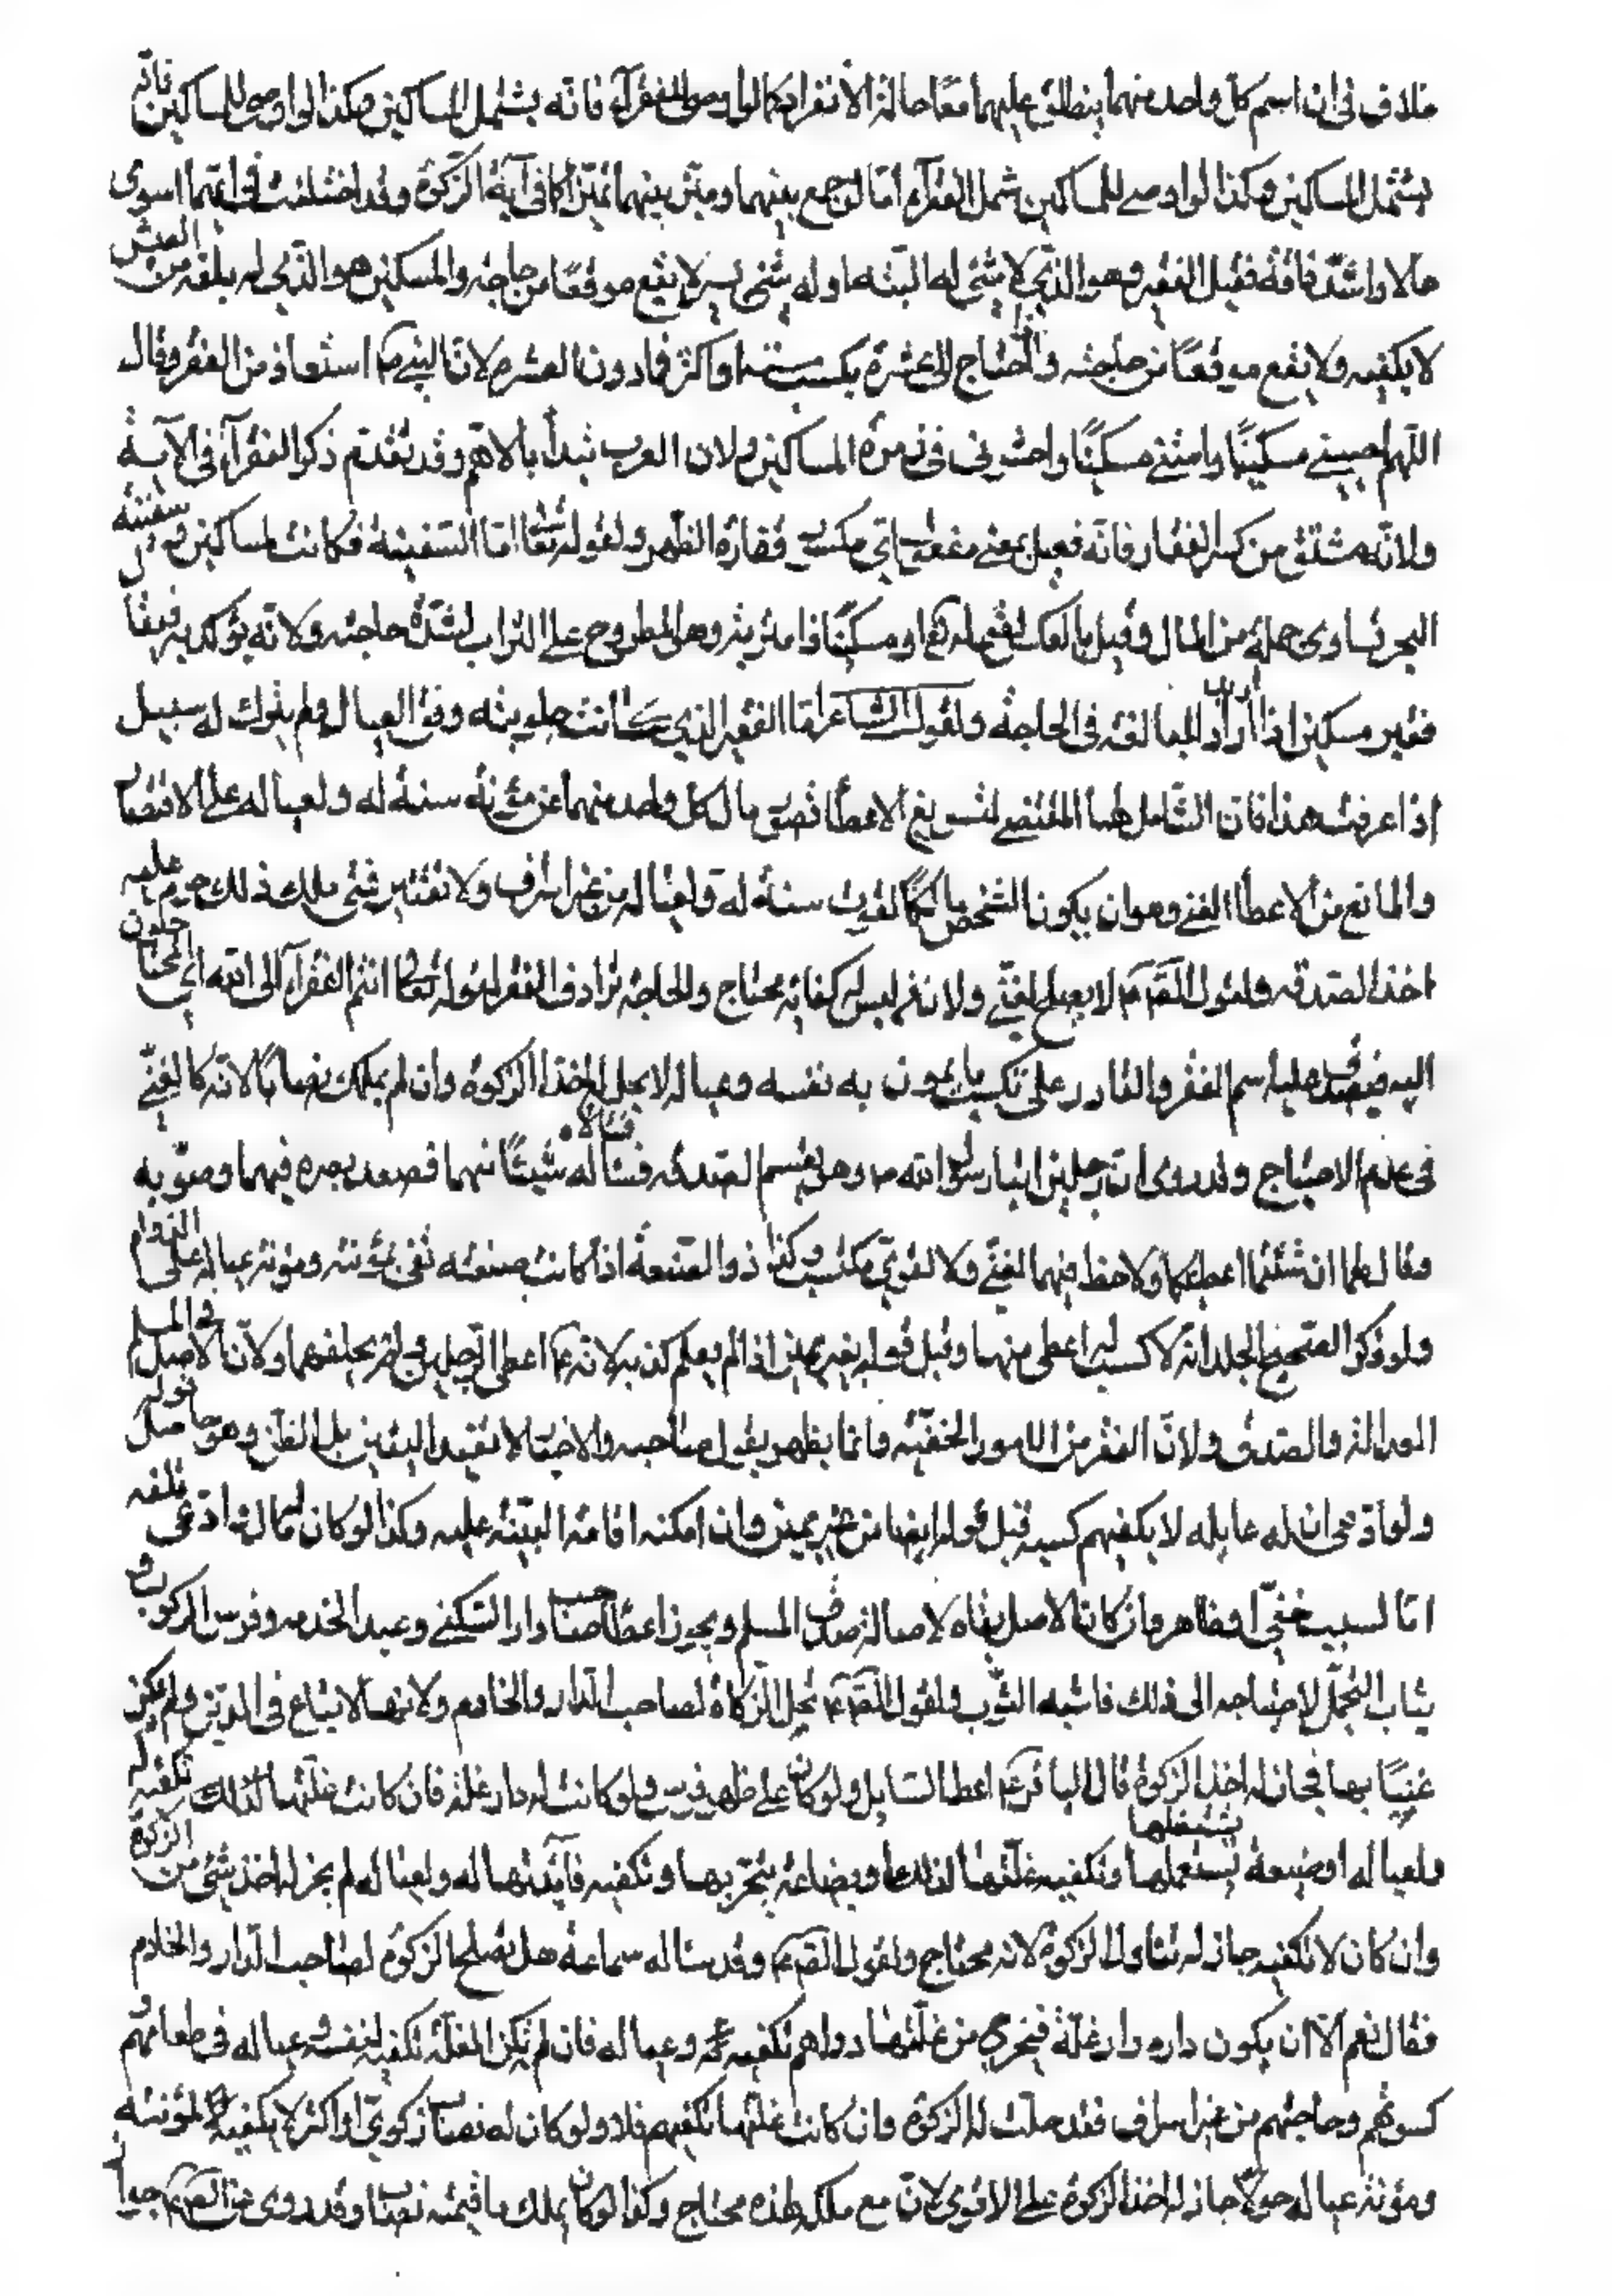 خلاف في ان اسم كل واحد منهما ينطلق عليهما معًا حالة الانفراد كما لو اوصى للفقرآء فانه يشتمل المساكين وهكذا لو اوصى للمساكين فانه
يشتمل المساكين وهكذا لو اوصى للمساكين شمل الفقرآء امّا لو جمع بينهما وميّز بينهما تميّزا كما في آية الزكوة وقد اختلفت في ايّهما اسوى
حالا واشدّ فاقة فقيل الفقير وهو الذي لا شئ له البته او له شئ يسير لا يقع موقعًا من حاجته والمسكين هو الذي له بلغة من العيش
لا يكفيه ولا يقع موقعًا من حاجته والمحتاج الى عشرة يكسب ستة او اكثر فادون العشرة لان النبي ص استعاذ من الفقر وقال
اللهم احييني مسكينًا وامتني مسكينًا واحشرني في زمرة المساكين ولان العرب تبدأ بالاهم وقد تقدم ذكر الفقرآء في الآية
ولانه مشتق من كسر الفقار فانه فعيل بمعنى مفعول اي مكسور فقارة الظهر ولقوله تعالى امّا السفينة فكانت لمساكين وسفينة
البحر تساوى جملة من المال وقيل بالعكس لقوله تعالى او مسكينًا ذا متربة وهو المطروح على التراب لشدّة حاجته ولانه يؤكد به فيقال
فقير مسكين اذا أرادوا المبالغة في الحاجة ولقول الشاعر امّا الفقير الذي كانت حلوبته وفق العيال ولم يترك له سبيل
اذا عرفت هذا فان الشامل لهما المقتضي لتسويغ الاعطأ قصور مال كل واحد منهما عن مؤنة سنة له ولعياله على الاقتصاد
والمانع من الاعطأ الغنى وهو ان يكون الشخص مالكًا لقوت سنة له ولعياله من غير اسراف ولا تقتير فمتى ملك ذلك حرم عليه
اخذ الصدقة ولقول الصّ ع لا يحل لغنّي ولان من ليس له كفاية محتاج والحاجة ترادف الفقر لقوله تعالى انتم الفقرآء الى الله اي المحتاجون
اليه فيصدق عليه اسم الفقر والقادر على تكسب ما يمون به نفسه وعياله لا يحل له اخذ الزكوة وان لم يملك نصابًا لانه كالغنّي
في عدم الاحتياج وقد روى ان رجلين اتيا رسول الله ص وهو يقسم الصدقة فسألاه شيئًا منها فصعد بصره فيهما وصوّبه
وقال لهما ان شئتما اعطيتكما ولا حظ فيها لغنّي ولا لقوّي مكتسب وكذا ذو الصنعة اذا كانت صنعته تفي بمؤنته ومؤنة عياله على الدوام
ولو ذكر الصحيح الجلد انه لا كسب له اعطى منها وقبل قوله بغير يمين اذا لم يعلم كذبه لانه ع اعطى الرجلين ولم يحلفهما ولانّ الاصل في المسلم
العدالة والصدق ولانّ الفقر من الامور الخفيّة وانما يظهر بقول صاحبه والاحتيال لا تفيد اليقين بل الظن وهو حاصل بقوله
ولو ادّعى ان له عايله لا يكفيهم كسبه قبل قوله ايضا من غير يمين وان امكنه اقامة البيّنة عليه وكذا لو كان له مال وادّعى تلفه
امّا لسبب خفّي او ظاهر وان كان الاصل بقاه لاصالة صدق المسلم ويجوز اعطأ صاحب دار السّكنى وعبد الخدمه وفرس الركوب و
ثياب التجمّل لاحتياجه الى ذلك فاشبه الثّوب ولقول الصّ ع تحل الزكاة لصاحب الدار والخادم ولانها لا تباع في الدين ولم يكن
غنيًا بها فجاز له اخذ الزكوة قال الباقر ع اعط السّايل ولو كان على ظهر فرس ولو كانت له دار غلة فان كانت غلتها لذلك تكفيه له
ولعياله او ضيعة يستعملها يستغلها وتكفيه غلّتها لذلك او بضاعة يتجّر بها وتكفيه فآئدتها له ولعياله لم يجز له اخذ شئ من الزكوة
وان كان لا تكفيه جاز له تناول الزكوة لانه محتاج ولقول الصّ ع وقد سأله سماعة هل تصلح الزكوة لصاحب الدار والخادم
فقال نعم الّا ان يكون داره دار غلّة فيخرج من غلّتها دراهم تكفيه وعياله فان لم تكن الغلّة تكفيه لنفسه وعياله في طعامهم و
كسوتهم وحاجتهم من غير اسراف فقد حلّت له الزكوة وان كانت غلتها تكفيهم فلا ولو كان له نصاب زكوي او اكثر لا يكفيه لمؤنته
ومؤنة عياله حولًا جاز له اخذ الزكوة على الاقوى لانّ مع ملكه لهذه محتاج وكذا لو كان يملك ما قيمته نصاب وقد روى عن الصّ ع جواز